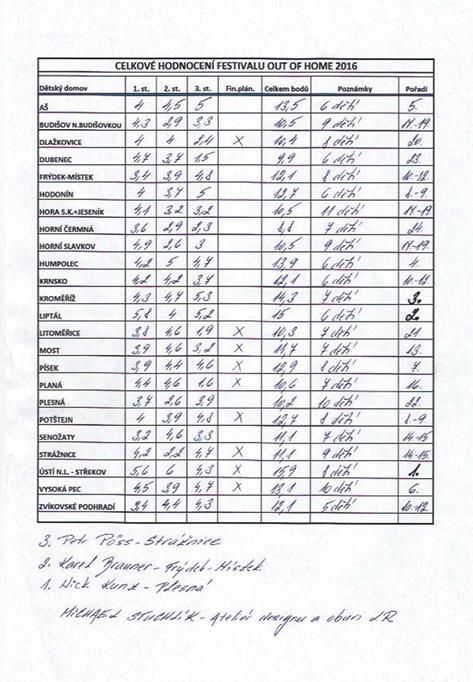 CELKOVÉ HODNOCENÍ FESTIVALU OUT OF HOME 2016
Dětský domov 1. st. 2. st. 3. st. Fin.plán. Celkem bodů Poznámky Pořadí
AŠ 4 4,5 5 13,5 6 dětí 5.
BUDIŠOV N.BUDIŠOVKOU 4,3 2,9 3,3 10,5 9 dětí 17-19.
DLAŽKOVICE 4 4 2,4 X 10,4 8 dětí 20.
DUBENEC 4,7 3,7 1,5 9,9 6 dětí 23.
FRÝDEK-MÍSTEK 3,4 3,9 4,8 12,1 8 dětí 10-12.
HODONÍN 4 3,7 5 12,7 6 dětí 8-9.
HORA S.K.+JESENÍK 4,1 3,2 3,2 10,5 11 dětí 17-19.
HORNÍ ČERMNÁ 3,6 2,9 2,3 8,8 7 dětí 24.
HORNÍ SLAVKOV 4,9 2,6 3 10,5 9 dětí 17-19.
HUMPOLEC 4,2 5 4,7 13,9 6 dětí 4.
KRNSKO 4,2 4,2 3,7 12,1 6 dětí 10-12
KROMĚŘÍŽ 4,3 4,7 5,3 14,3 7 dětí 3.
LIPTÁL 5,8 4 5,2 15 6 dětí 2.
LITOMĚŘICE 3,8 4,6 1,9 X 10,3 7 dětí 21.
MOST 3,9 4,6 3,2 X 11,7 7 dětí 13.
PÍSEK 3,9 4,4 4,6 X 12,9 8 dětí 7.
PLANÁ 4,4 4,6 1,6 X 10,6 7 dětí 16.
PLESNÁ 3,7 2,6 3,9 10,2 10 dětí 22.
POTŠTEJN 4 3,9 4,8 X 12,7 8 dětí 8-9
SENOŽATY 3,2 4,6 3,3 11,1 7 dětí 14-15
STRÁŽNICE 4,2 2,2 4,7 X 11,1 9 dětí 14-15.
ÚSTÍ N.L. - STŘEKOV 5,6 6 4,3 X 15,9 8 dětí 1.
VYSOKÁ PEC 4,5 3,9 4,7 X 13,1 10 dětí 6.
ZVÍKOVSKÉ PODHRADÍ 3,4 4,4 4,3 12,1 5 dětí 10-12
3. Petr Pöss - Strážnice
2. Karel Brauner - Frýdek-Místek
1. Nick Kunz - Plesná
MICHAEL STUCHLÍK - Ateliér designu a obuvi